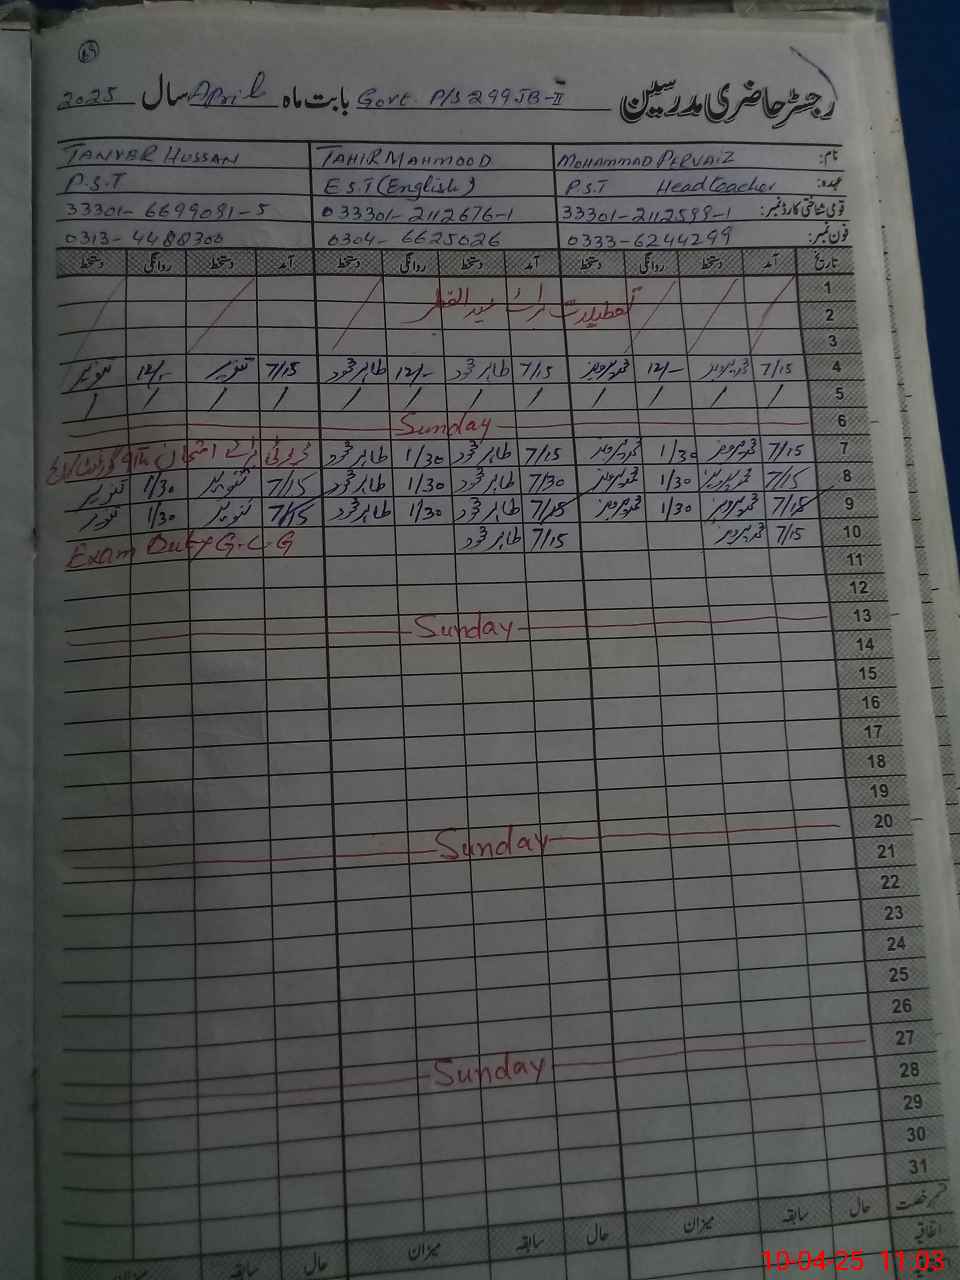 49
رجسٹر حاضری مدرسین Govt. P/S 299 JB-II بابت ماہ April سال 2025
نام: MOHAMMAD PERVAIZ TAHIR MAHMOOD TANVER HUSSAN
عہدہ: P.S.T Headteacher E.S.T (English) P.S.T
قومی شناختی کارڈ نمبر: 33301-2112599-1 033301-2112676-1 33301-6699091-5
فون نمبر: 0333-6244299 0304-6625026 0313-4480300
تاریخ آمد دستخط روانگی دستخط آمد دستخط روانگی دستخط آمد دستخط روانگی دستخط
1
2 تعطیلات برائے عید الفطر
3
4 7/15 محمد پرویز 12/- محمد پرویز 7/15 طاہر محمود 12/- طاہر محمود 7/15 تنویر 12/- تنویر
5 / / / / / / / / / / / /
6 Sunday
7 7/15 محمد پرویز 1/30 محمد پرویز 7/15 طاہر محمود 1/30 طاہر محمود ڈیوٹی برائے امتحان 9th
8 7/15 محمد پرویز 1/30 محمد پرویز 7/30 طاہر محمود 1/30 طاہر محمود 7/15 تنویر 1/30 تنویر
9 7/15 محمد پرویز 1/30 محمد پرویز 7/15 طاہر محمود 1/30 طاہر محمود 7/15 تنویر 1/30 تنویر
10 7/15 محمد پرویز 7/15 طاہر محمود Exam Duty G.C.G
11
12
13 Sunday
14
15
16
17
18
19
20 Sunday
21
22
23
24
25
26
27 Sunday
28
29
30
31
قسم رخصت حال سابقہ میزان حال سابقہ میزان حال سابقہ میزان
اتفاقیہ
10-04-25 11:03